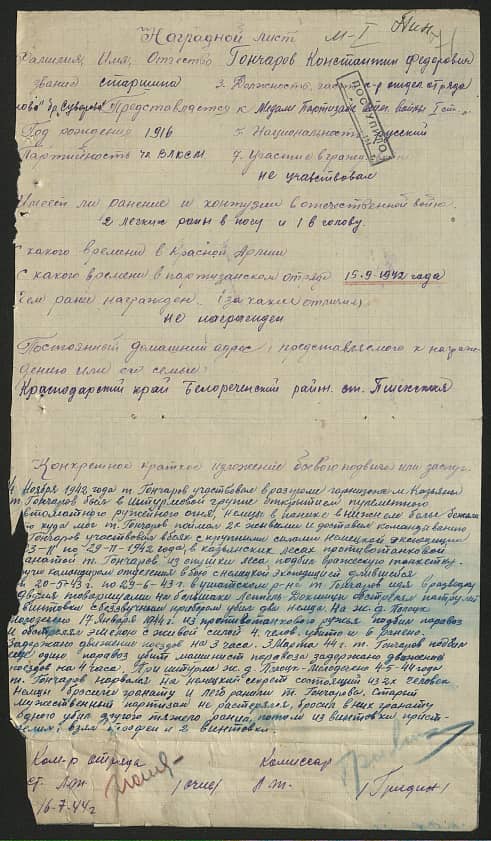 Наградной лист
М-I
Фамилия, Имя, Отчество Гончаров Константин Федорович
звание старшина 3. Должность, часть к-р отдел отряда
"гр. Суворова" Представляется к Медали Партизану Отеч. войны I ст.
Год рождения 1916 5. Национальность русский
ПОСТУПИЛО
Партийность чл ВЛКСМ 7. Участие в граждан
не участвовал
Имеет ли ранение и контузии в отечественной войне.
2 легких раны в ногу и 1 в голову.
С какого времени в Красной Армии
С какого времени в партизанском отряде 15-9-1942 года
Чем ранее награжден. (за какие отличия)
не награжден
Постоянный домашний адрес: представляемого к награж-
дению или его семьи:
Краснодарский край Белореченский район. ст. Пшехская
Конкретное краткое изложение боевого подвига или заслуг.
Ноября 1942 года т. Гончаров участвовал в разгроме гарнизона м. Казяны
т. Гончаров был в штурмовой группе открытием пулеметного
автоматного ружейного огня, немцы в панике в нижнем белье бежали
кто куда мог т. Гончаров поймал 2х живыми и доставил командованию
т. Гончаров участвовал в боях с крупными силами немецкой экспедиции
23-11 по 29-11-1942 года, в казянских лесах противотанковой
гранатой т. Гончаров из опушки леса подбил вражескую танкетку.
Будучи командиром отделения в бою с немецкой экспедицией длившийся
с 20-5-43 г. по 29-6-43 г. в ушатском р-не т. Гончаров идя в разведку
с двумя товарищами на большаке Лепель Докшицы обстрелял патруль
из винтовки с беззвучным прибором убил два немца. На ж.д. Полоцк
Молодечно 17 января 1944 г. из противотанкового ружья подбил паровоз
и обстрелял эшелон с живой силой 4 чел. убито и 6 ранено.
Задержано движение поездов на 3 часа. 3 Марта 44 г. т. Гончаров подбил
еще один паровоз убит машинист паровоза задержано движение
поездов на 4 часа. При штурме ж.д. Полоцк-Молодечно 4-4-44 года
т. Гончаров нарвался на немецкий секрет состоящий из 2х человек
немцы бросили гранату и легко ранили т. Гончарова. Старый
мужественный партизан не растерялся, бросил в них гранату
одного убил другого тяжело ранил, потом из винтовки прист-
релил, взял трофеи и 2 винтовки.
Ком-р отряда Комиссар
ст. л-т л-т.
16-7-44 г.